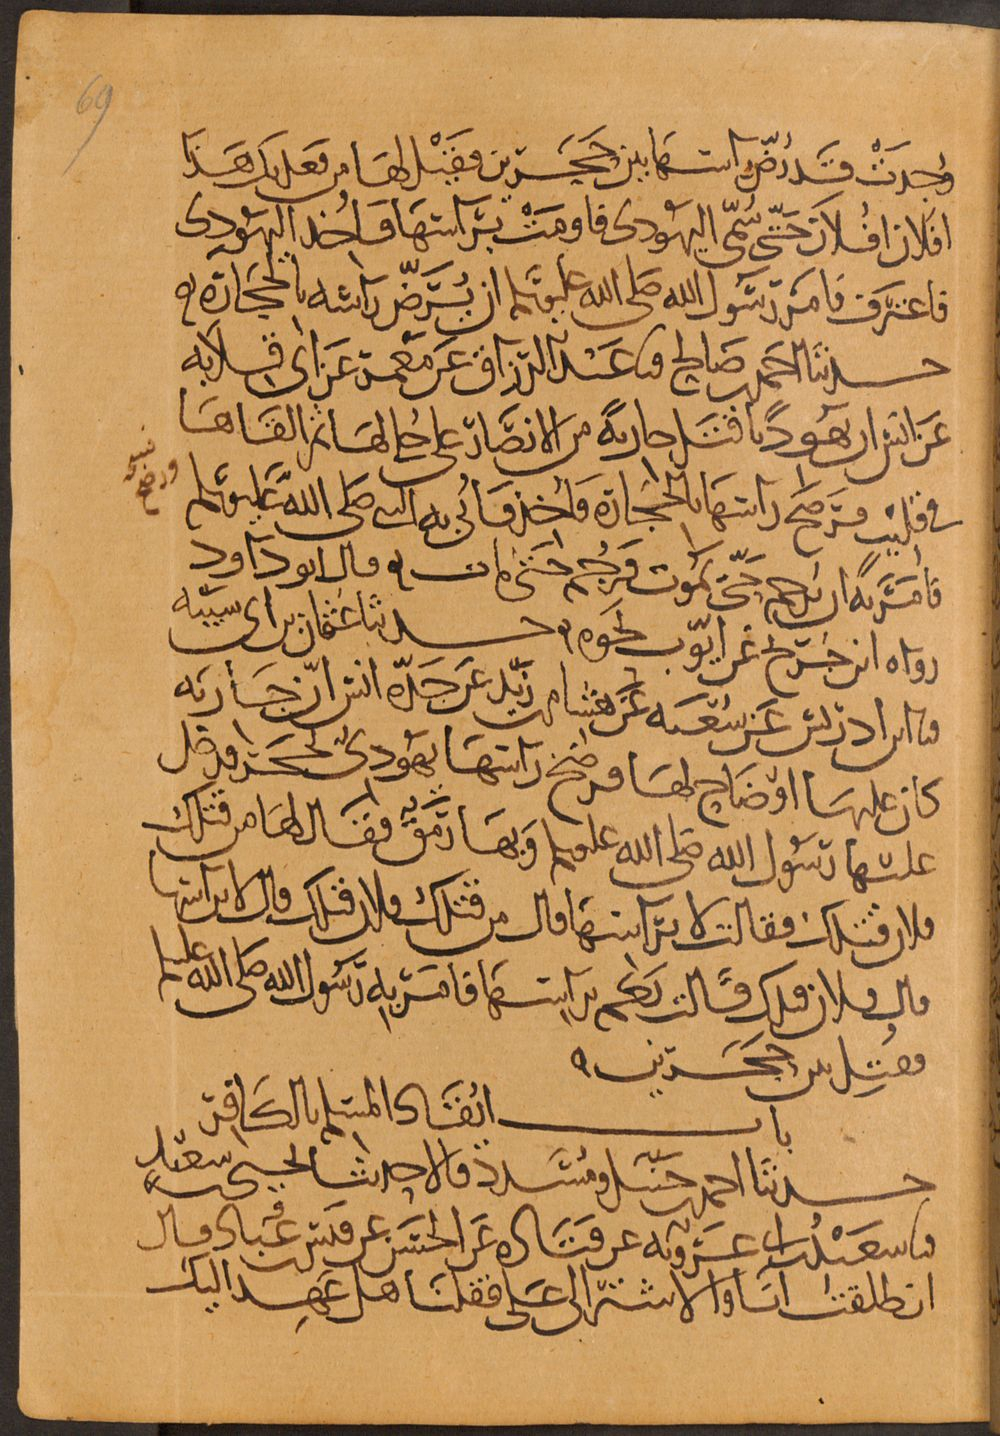 69
وُجِدَتْ قَد رُضَّ رَاسُهَا بين حَجَرَين فقِيْل لها من فعل بك هَذا
افلان افُلان حَتّى سُمّي اليهودى فاومَتْ بَرَاسهَا فَاُخِذ اليَهُودى
فاعتَرفَ فامَرَ رَسُول الله صَلى الله عليه وسلم ان يُرَضّ رَاسه بالحجَارة ه
حدثنا احمد بن صَالح نا عَبْد الرّزاق عَن مَعْمر عَن اى قِلَابه
عَن انس ان يَهوُديًّا قتل جاريَةً من الانصَار على حُلى لهَا ثم القَاهَا
في قليبٍ ورضَخ رَاسَهَا بالحجَارة فَاُخِذ فاُتى به النبي صَلى الله عَليه وسلم
فسح
ورضح
فأمَرَ به ان يُرجم حَتّى يموت فرُجِم حَتّى مات ه قال ابو داود
رواه ابن جُرَيج عَن ايّوب نحوه ه حدثنا عثمان بن اى شيبه
نا ابن ادريس عَن شعْبَه عَن هشام بن زَيْد عَن جَدّه انس انّ جَارية
كان عليهَا اوْضَاح لهَا فرضخ رَاسَهَا يَهوديّ بحَجَر فدخل
عليها رَسُول الله صَلى الله عليه وسلم وَبهَا رَمَقٌ فقَال لهَا من قتلك
فلان قتلك فقالت لا برَاسهَا قال من قتلك فلان قتلك قال لا براسها
قال فلان قتلك قالت نَعم براسهَا فامَرَ بِه رَسُول الله صَلى الله عليه وسلم
فقُتِل بين حجَرَين ه
باب ايُقَاد المسلم بالكَافر
حدثنا احمد بن حَنبل ومُسَدد قالا حدثنا يحيى بن سعيْد
نا سعيْد بن اى عَرُوبَه عن قتَادَه عَن الحسَن عن قيس بن عُبَاد قال
انطلقتُ انَا والاشتَر الى عَلى فقلنَا هَل عَهِد اليك